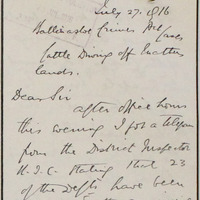 July 27. 1816
Ballinasloe Crimes Act Cases
Cattle Driving off
lands.
Dear Sir
after office hours
this evening I got a telegram
from the District Inspector
R.I.C. stating that 23
of the Defts have been